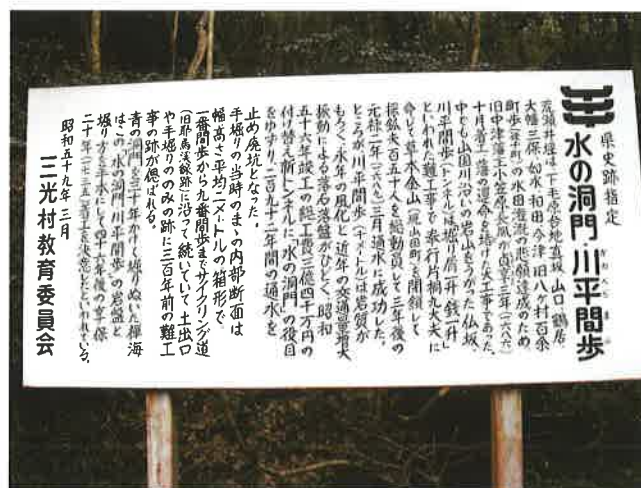 県史跡指定
水の洞門・川平間歩
かわべらまぶ
荒瀬井堰は、下毛原台地真坂、山口、鶴居、
大幡、三保、如水、和田、今津、旧八ヶ村百余
町歩の水田灌漑の悲願達成のため、
旧中津藩主小笠原長胤が貞享三年(一六八六)
十月着工、藩の運命を賭けた大工事であった。
中でも山国川沿いの岩山をうがった仏坂、
川平間歩(トンネル)は「堀り屑一升、銭一升」
といわれた難工事で、奉行片桐九大夫に
命じて草本金山(現山国町)を閉鎖して
採鉱夫百五十人を総動員して三年後の
元禄二年(一六八九)三月通水に成功した。
ところが川平間歩は岩質が
もろく、永年の風化と近年の交通量増大
振動による落石落盤がひどく、昭和
五十六年竣工の総工費三億四千万円の
付け替え新トンネルに「水の洞門」の役目
をゆずり、二百九十二年間の通水を
止め廃坑となった。
手堀りの、当時のまゝの内部断面は
幅高さ平均二メートルの箱形で、
一番間歩から九番間歩までサイクリング道
(旧耶馬渓線跡)に沿って続いていて土出口
や手堀りののみの跡に三百年前の難工
事の跡が偲ばれる。
青の洞門を三十年かけて堀りぬいた禅海
はこの「水の洞門・川平間歩」の岩盤と
堀り方を手本にして四十六年後の享保
二十年(一七三五)着工を決意したといわれている。
昭和五十九年三月
三光村教育委員会